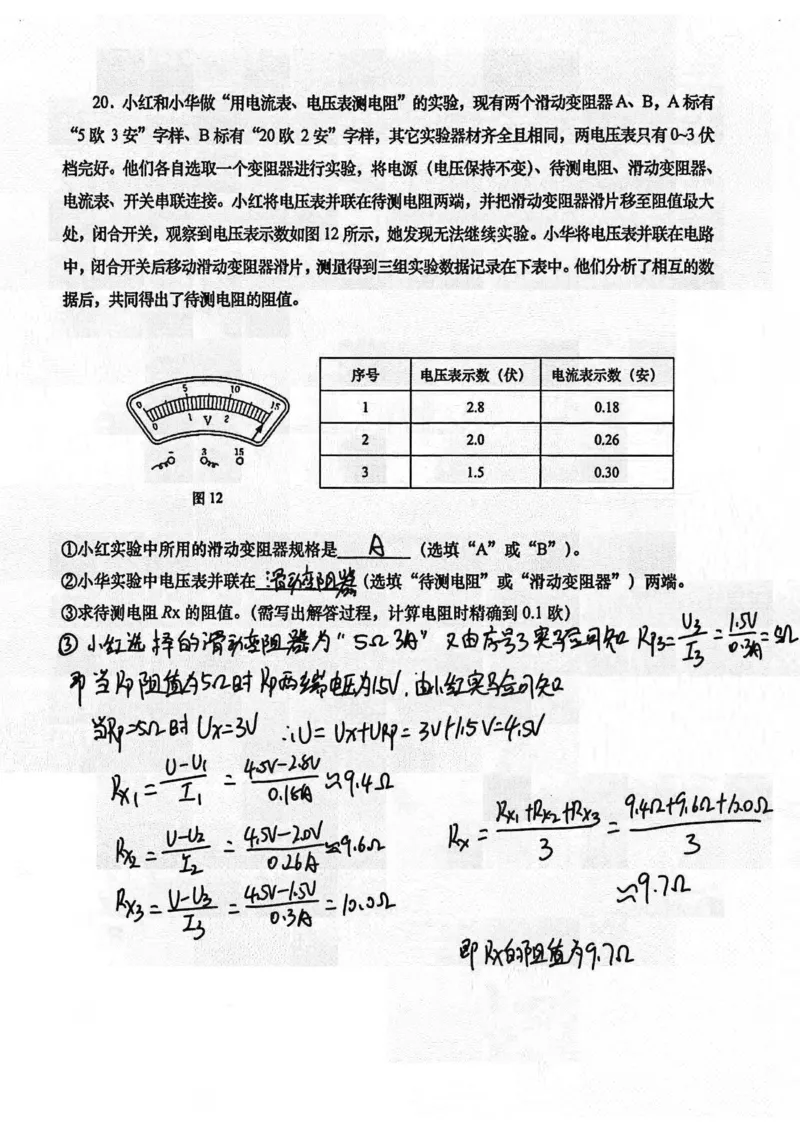 20. 小红和小华做“用电流表、电压表测电阻”的实验，现有两个滑动变阻器 A、B，A 标有
“5 欧 3 安”字样、B 标有“20 欧 2 安”字样，其它实验器材齐全且相同，两电压表只有 0~3 伏
档完好。他们各自选取一个变阻器进行实验，将电源（电压保持不变）、待测电阻、滑动变阻器、
电流表、开关串联连接。小红将电压表并联在待测电阻两端，并把滑动变阻器滑片移至阻值最大
处，闭合开关，观察到电压表示数如图 12 所示，她发现无法继续实验。小华将电压表并联在电路
中，闭合开关后移动滑动变阻器滑片，测量得到三组实验数据记录在下表中。他们分析了相互的数
据后，共同得出了待测电阻的阻值。
0 5 10 15
0 1 2
V
- 3 15
图 12
序号 电压表示数（伏） 电流表示数（安）
1 2.8 0.18
2 2.0 0.26
3 1.5 0.30
①小红实验中所用的滑动变阻器规格是 A （选填“A”或“B”）。
②小华实验中电压表并联在 滑动变阻器 （选填“待测电阻”或“滑动变阻器”）两端。
③求待测电阻 Rx 的阻值。(需写出解答过程，计算电阻时精确到 0.1 欧)
③ 小红选择的滑动变阻器为“5Ω 3A” 又由序号3实验可知 Rp3=U3/I3=1.5V/0.3A=5Ω
即当Rp阻值为5Ω时 Rp两端电压为1.5V，由小红实验可知
当Rp=5Ω时 Ux=3V ∴U=Ux+URp=3V+1.5V=4.5V
Rx1=U-U1/I1=4.5V-2.8V/0.18A≈9.4Ω
Rx2=U-U2/I2=4.5V-2.0V/0.26A≈9.6Ω
Rx3=U-U3/I3=4.5V-1.5V/0.3A=10.0Ω
Rx=Rx1+Rx2+Rx3/3=9.4Ω+9.6Ω+10.0Ω/3
≈9.7Ω
即Rx的阻值为9.7Ω